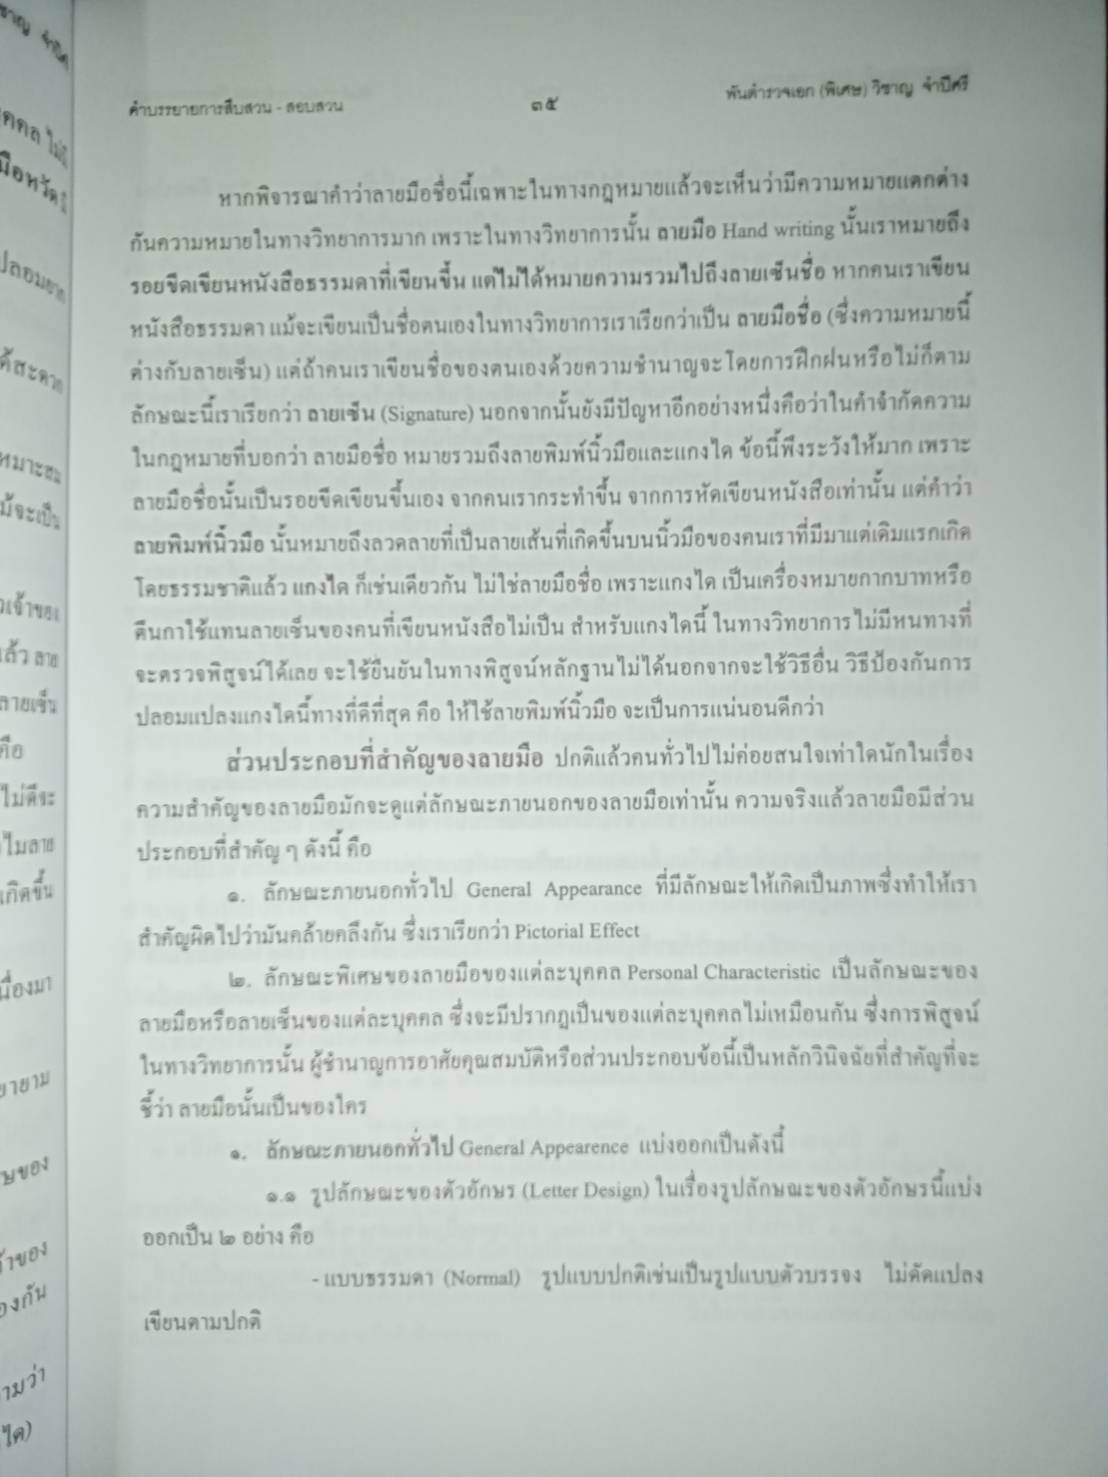 คำบรรยายการสืบสวน - สอบสวน
๓๕
พันตำรวจเอก (พิเศษ) วิชาญ จำปีศรี
หากพิจารณาคำว่าลายมือชื่อนี้เฉพาะในทางกฎหมายแล้วจะเห็นว่ามีความหมายแตกต่าง
กันความหมายในทางวิทยาการมาก เพราะในทางวิทยาการนั้น ลายมือ Hand writing นั้นเราหมายถึง
รอยขีดเขียนหนังสือธรรมดาที่เขียนขึ้น แต่ไม่ได้หมายความรวมไปถึงลายเซ็นชื่อ หากคนเราเขียน
หนังสือธรรมดา แม้จะเขียนเป็นชื่อตนเองในทางวิทยาการเราเรียกว่าเป็น ลายมือชื่อ (ซึ่งความหมายนี้
ต่างกับลายเซ็น) แต่ถ้าคนเราเขียนชื่อของตนเองด้วยความชำนาญจะโดยการฝึกฝนหรือไม่ก็ตาม
ลักษณะนี้เราเรียกว่า ลายเซ็น (Signature) นอกจากนั้นยังมีปัญหาอีกอย่างหนึ่งคือว่าในคำจำกัดความ
ในกฎหมายที่บอกว่า ลายมือชื่อ หมายรวมถึงลายพิมพ์นิ้วมือและแกงได ข้อนี้พึงระวังให้มาก เพราะ
ลายมือชื่อนั้นเป็นรอยขีดเขียนขึ้นเอง จากคนเรากระทำขึ้น จากการหัดเขียนหนังสือเท่านั้น แต่คำว่า
ลายพิมพ์นิ้วมือ นั้นหมายถึงลวดลายที่เป็นลายเส้นที่เกิดขึ้นบนนิ้วมือของคนเราที่มีมาแต่เดิมแรกเกิด
โดยธรรมชาติแล้ว แกงได ก็เช่นเดียวกัน ไม่ใช่ลายมือชื่อ เพราะแกงได เป็นเครื่องหมายกากบาทหรือ
ตีนกาใช้แทนลายเซ็นของคนที่เขียนหนังสือไม่เป็น สำหรับแกงไดนี้ ในทางวิทยาการไม่มีหนทางที่
จะตรวจพิสูจน์ได้เลย จะใช้ยืนยันในทางพิสูจน์หลักฐานไม่ได้นอกจากจะใช้วิธีอื่น วิธีป้องกันการ
ปลอมแปลงแกงไดนี้ทางที่ดีที่สุด คือ ให้ใช้ลายพิมพ์นิ้วมือ จะเป็นการแน่นอนดีกว่า
ส่วนประกอบที่สำคัญของลายมือ ปกติแล้วคนทั่วไปไม่ค่อยสนใจเท่าใดนักในเรื่อง
ความสำคัญของลายมือมักจะดูแต่ลักษณะภายนอกของลายมือเท่านั้น ความจริงแล้วลายมือมีส่วน
ประกอบที่สำคัญ ๆ ดังนี้ คือ
๑. ลักษณะภายนอกทั่วไป General Appearance ที่มีลักษณะให้เกิดเป็นภาพซึ่งทำให้เรา
สำคัญผิดไปว่ามันคล้ายคลึงกัน ซึ่งเราเรียกว่า Pictorial Effect
๒. ลักษณะพิเศษของลายมือของแต่ละบุคคล Personal Characteristic เป็นลักษณะของ
ลายมือหรือลายเซ็นของแต่ละบุคคล ซึ่งจะมีปรากฏเป็นของแต่ละบุคคลไม่เหมือนกัน ซึ่งการพิสูจน์
ในทางวิทยาการนั้น ผู้ชำนาญการอาศัยคุณสมบัติหรือส่วนประกอบข้อนี้เป็นหลักวินิจฉัยที่สำคัญที่จะ
ชี้ว่า ลายมือนั้นเป็นของใคร
๑. ลักษณะภายนอกทั่วไป General Appearence แบ่งออกเป็นดังนี้
๑.๑ รูปลักษณะของตัวอักษร (Letter Design) ในเรื่องรูปลักษณะของตัวอักษรนี้แบ่ง
ออกเป็น ๒ อย่าง คือ
- แบบธรรมดา (Normal) รูปแบบปกติเช่นเป็นรูปแบบตัวบรรจง ไม่ดัดแปลง
เขียนตามปกติ